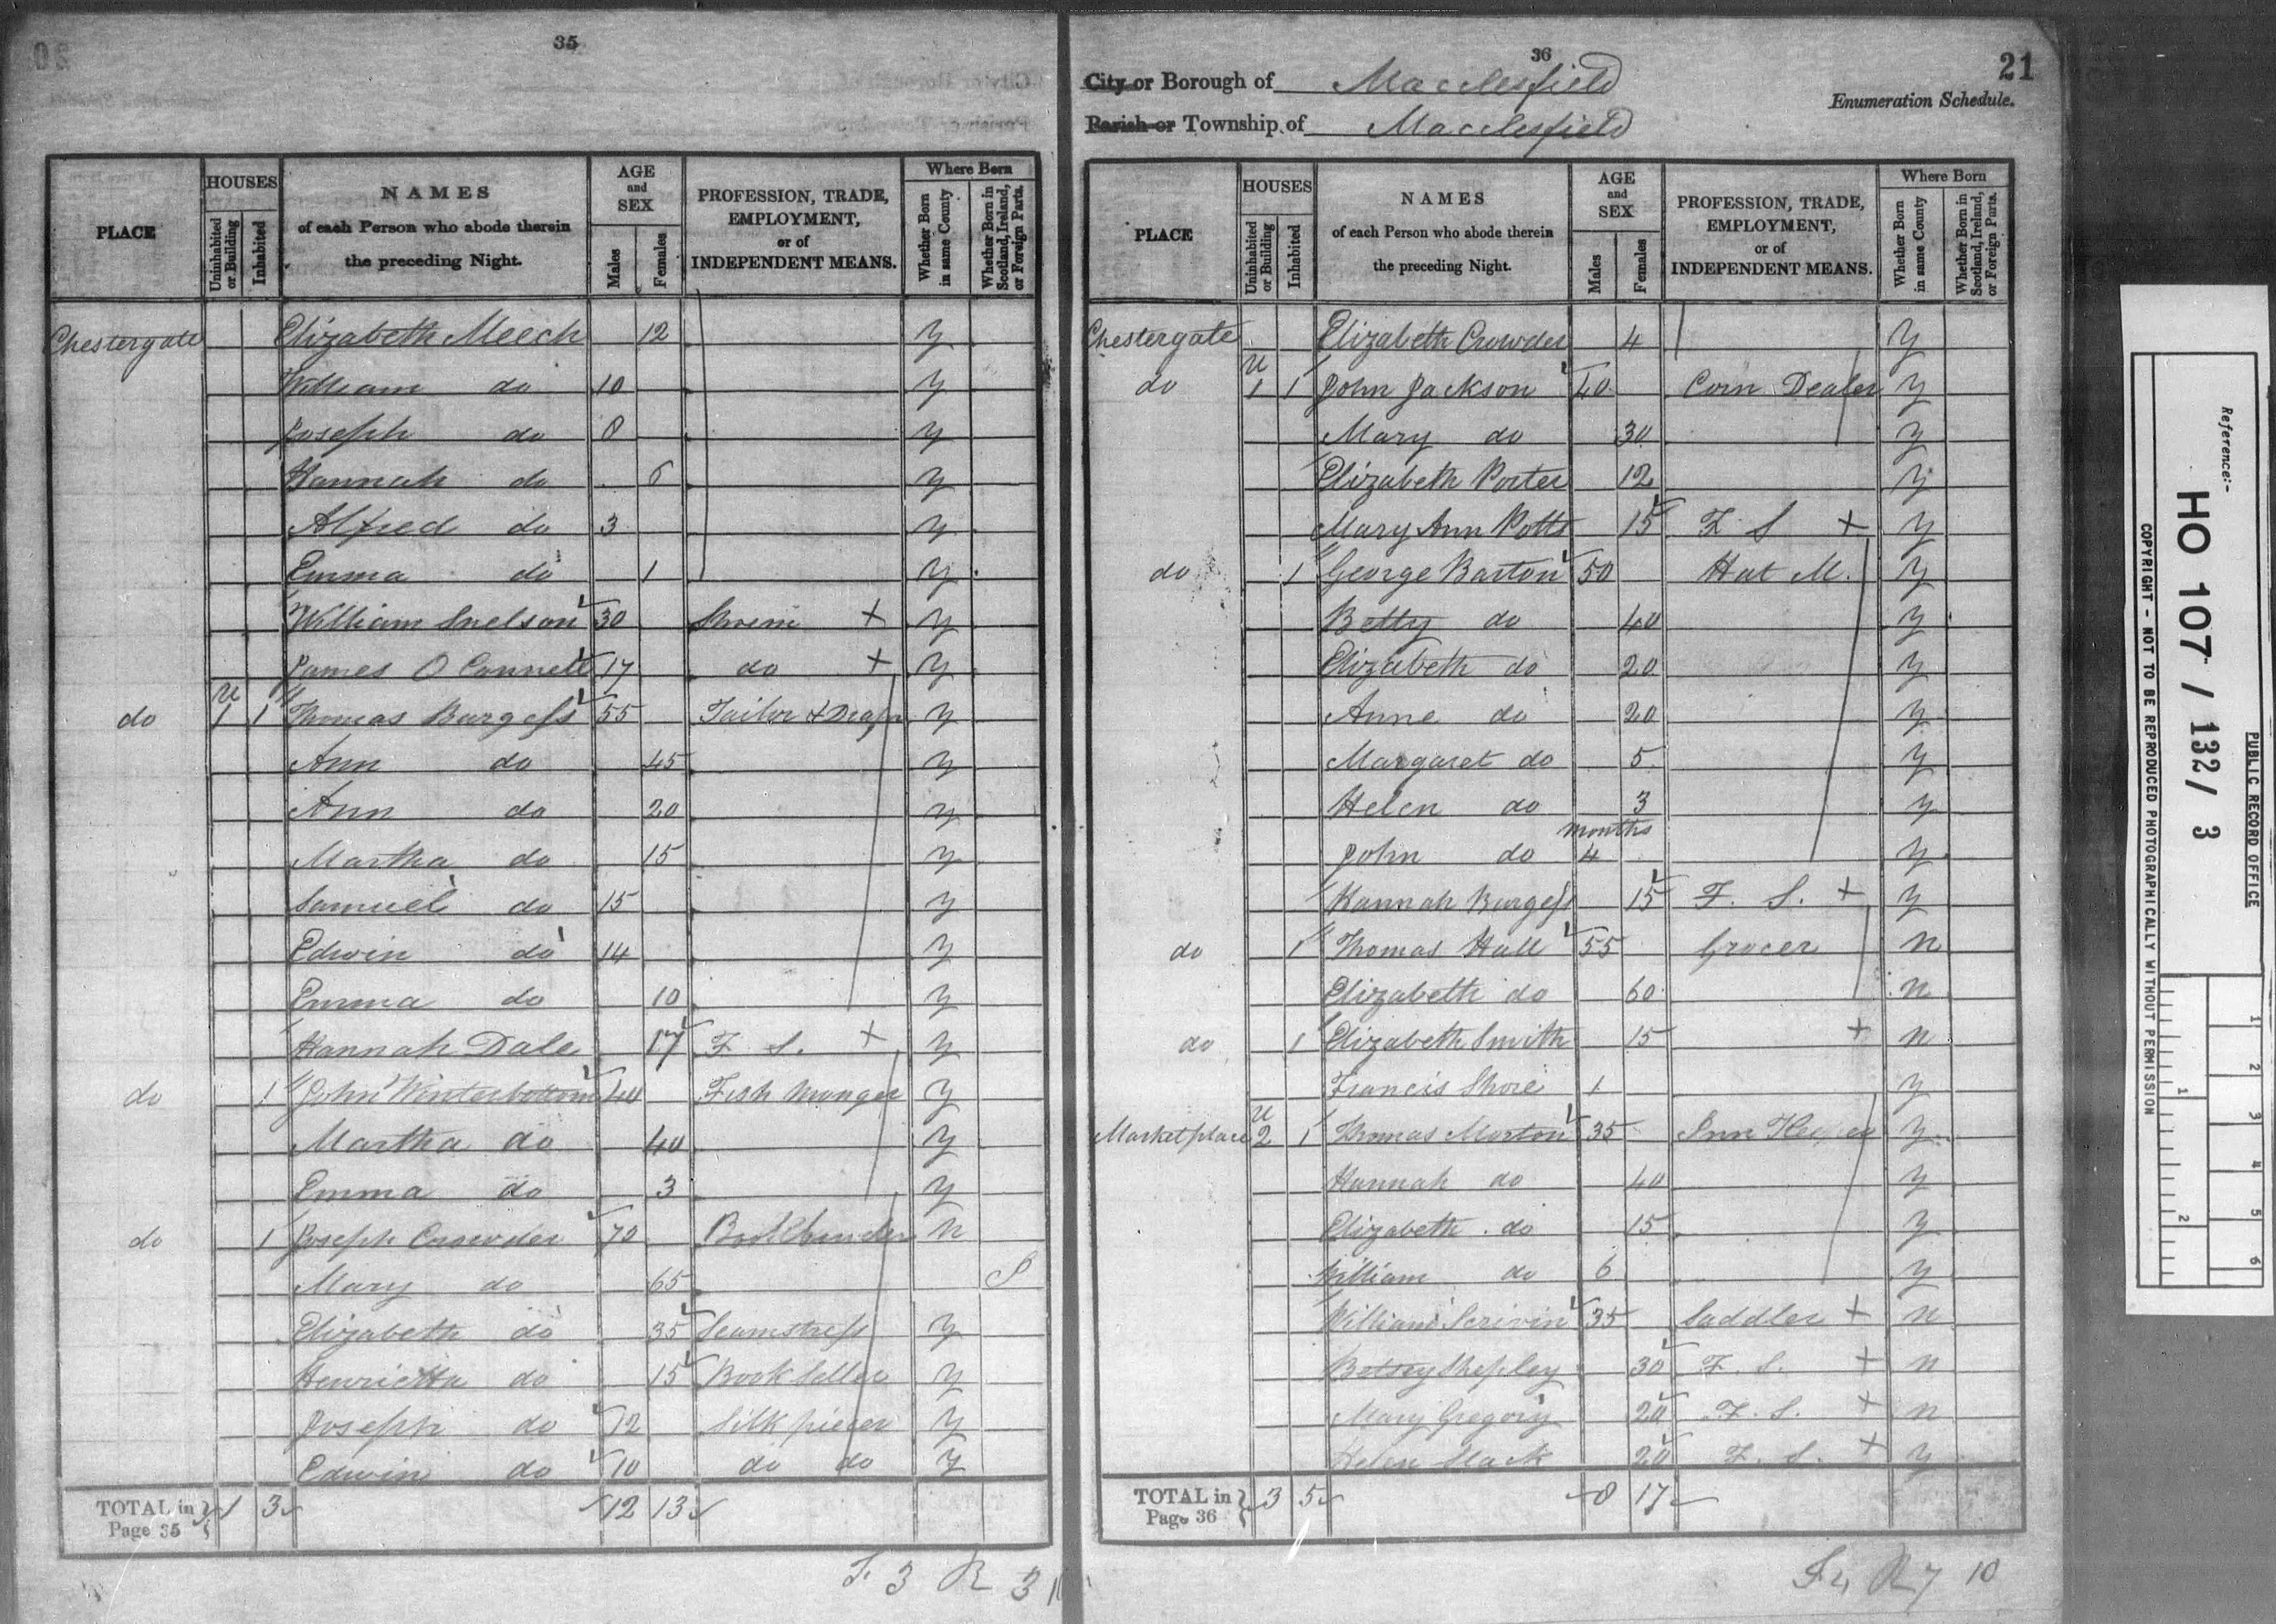 35
PLACE HOUSES Uninhabited or Building Inhabited NAMES of each Person who abode therein the preceding Night. AGE and SEX Males Females PROFESSION, TRADE, EMPLOYMENT, or of INDEPENDENT MEANS. Where Born Whether Born in same County Whether Born in Scotland, Ireland, or Foreign Parts.
Chestergate Elizabeth Meech 12 y
William do 10 y
Joseph do 8 y
Hannah do 6 y
Alfred do 3 y
Emma do 1 y
William Snelson 30 + y
James O Connell 17 do + y
do u 1 1 Thomas Burgess 55 Tailor & Draper y
Ann do 45 y
Ann do 20 y
Martha do 15 y
Samuel do 15 y
Edwin do 14 y
Emma do 10 y
Hannah Dale 17 F S. + y
do 1 John Winterbottom 40 Fish Monger y
Martha do 40 y
Emma do 3 y
do 1 Joseph Crowder 70 Bookbinder n
Mary do 65 S
Elizabeth do 35 Seamstress y
Henrietta do 15 Book Seller y
Joseph do 12 Silk piecer y
Edwin do 10 do do y
TOTAL in Page 35 } 1 3 12 13
F. 3 R 3
36
21
City or Borough of Macclesfield
Enumeration Schedule.
Parish or Township of Macclesfield
PLACE HOUSES Uninhabited or Building Inhabited NAMES of each Person who abode therein the preceding Night. AGE and SEX Males Females PROFESSION, TRADE, EMPLOYMENT, or of INDEPENDENT MEANS. Where Born Whether Born in same County Whether Born in Scotland, Ireland, or Foreign Parts.
Chestergate Elizabeth Crowder 4 y
do u 1 1 John Jackson 40 Corn Dealer y
Mary do 30 y
Elizabeth Porter 12 y
Mary Ann Potts 15 F S + y
do 1 George Barton 50 Hat M. y
Betty do 40 y
Elizabeth do 20 y
Anne do 20 y
Margaret do 5 y
Helen do 3 y
months
John do 4 y
Hannah Burgess 15 F. S. + y
do 1 Thomas Hall 55 Grocer n
Elizabeth do 60 n
do 1 Elizabeth Smith 15 + n
Francis Shore 1 y
Marketplace u 2 1 Thomas Morton 35 Inn Keeper y
Hannah do 40 y
Elizabeth do 15 y
William do 6 y
William Scrivin 35 Saddler + n
Betsey Shepley 30 F. S. + n
Mary Gregory 20 F. S. + n
Helen Slack 20 F. S. + y
TOTAL in Page 36 } 3 5 8 17
F 4 R 7 10
Reference:-
HO 107 / 132 / 3
PUBLIC RECORD OFFICE
COPYRIGHT - NOT TO BE REPRODUCED PHOTOGRAPHICALLY WITHOUT PERMISSION
1 2 3 4 5 6
1 2